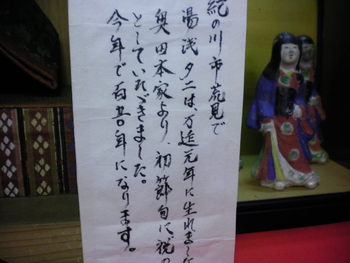 紀の川市荒見で
湯浅タニは万延元年に生れました
奥田本家より初節句に祝の
としていたゞきました。
今年で百五〇年になります。